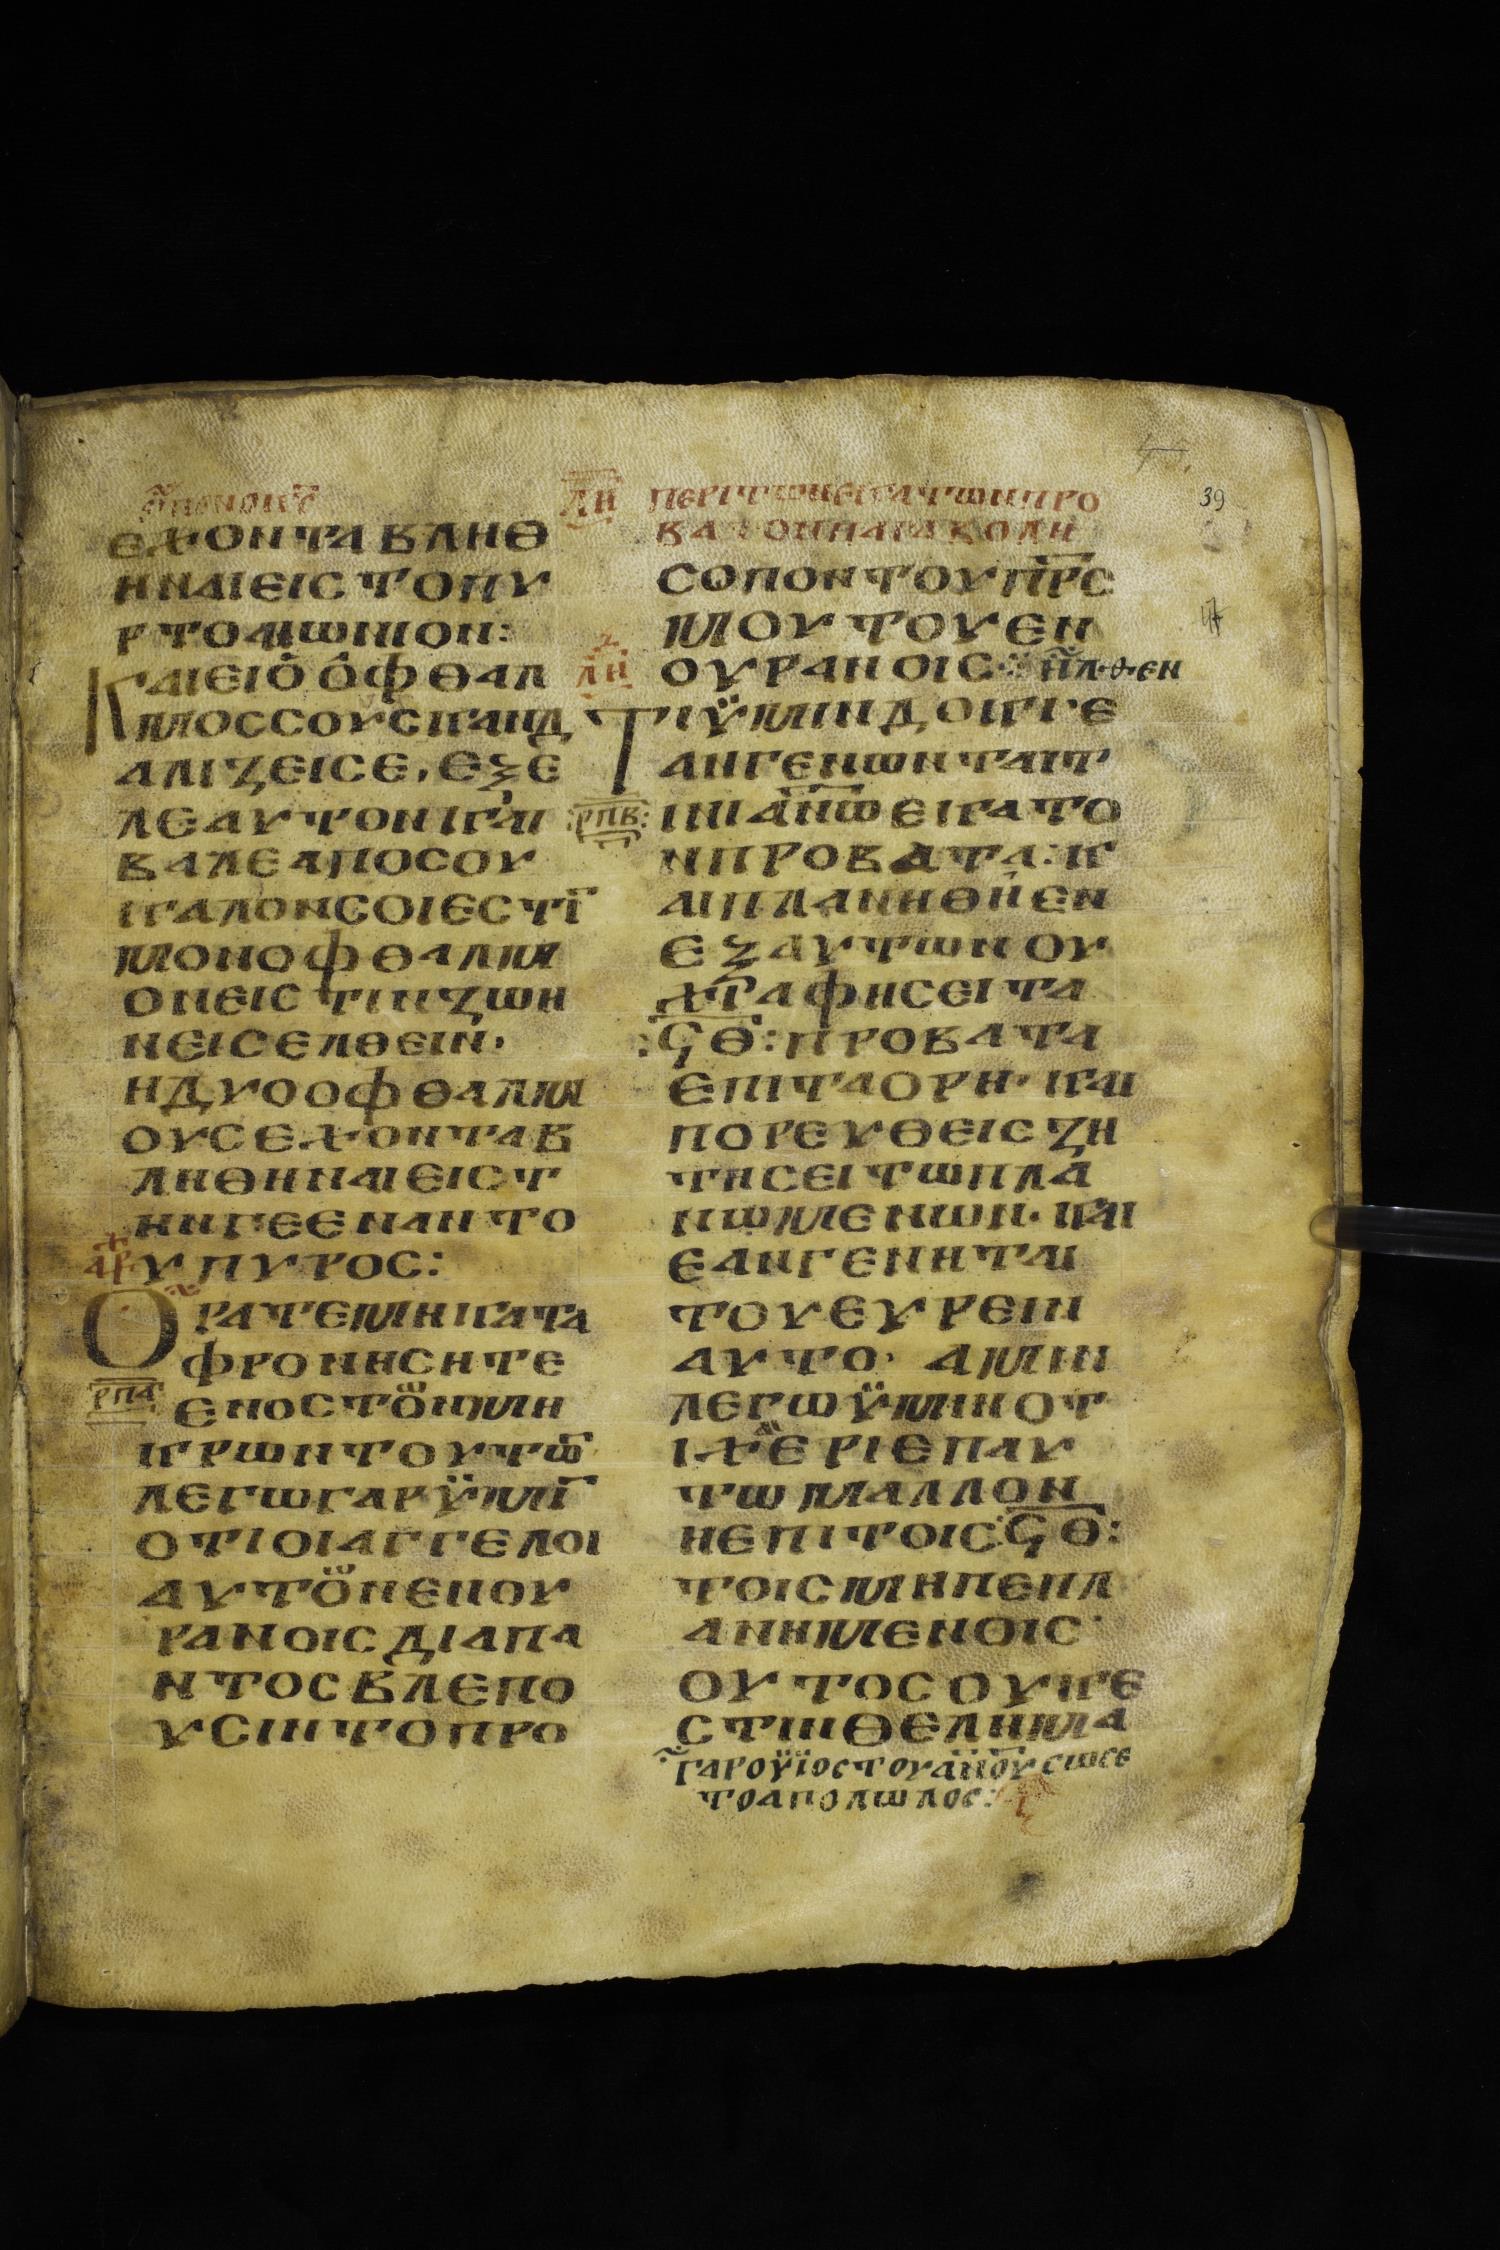 ΛΗ ΠΕΡΙΤΩΝΕΚΑΤΩΝΠΡΟ
ΒΑΤΟΝΠΑΡΑΒΟΛΗ
39
ΕΧΟΝΤΑΒΛΗΘ
ΗΝΑΙΕΙΣΤΟΠΥ
ΡΤΟΑΙΩΝΙΟΝ:
ΚΑΙΕΙΟΟΦΘΑΛ
ΜΟΣΣΟΥΣΚΑΝΔ
ΑΛΙΖΕΙΣΕ, ΕΞΕ
ΛΕΑΥΤΟΝΚΑΙ
ΒΑΛΕΑΠΟΣΟΥ
ΚΑΛΟΝΣΟΙΕΣΤΙ̅
ΜΟΝΟΦΘΑΛΜ
ΟΝΕΙΣΤΙΝΖΩΗ
ΝΕΙΣΕΛΘΕΙΝ·
ΗΔΥΟΟΦΘΑΛΜ
ΟΥΣΕΧΟΝΤΑΒ
ΛΗΘΗΝΑΙΕΙΣΤ
ΗΝΓΕΕΝΑΝΤΟ
ΑΡΧ ΥΠΥΡΟΣ:
ΟΡΑΤΕΜΗΚΑΤΑ
ΦΡΟΝΗΣΗΤΕ
ΡΠΑ ΕΝΟΣΤΟΝΜΗ
ΚΡΩΝΤΟΥΤΩ̅
ΛΕΓΩΓΑΡΫΜΙ̅
ΟΤΙΟΙΑΓΓΕΛΟΙ
ΑΥΤΟΝΕΝΟΥ
ΡΑΝΟΙΣΔΙΑΠΑ
ΝΤΟΣΒΛΕΠΟ
ΥΣΙΝΤΟΠΡΟ
ΣΟΠΟΝΤΟΥΠ̅Ρ̅Σ̅
47
ΜΟΥΤΟΥΕΝ
ΛΗ ΟΥΡΑΝΟΙΣ
ΤΙΫΜΙΝΔΟΚΙΕ
ΑΝΓΕΝΩΝΤΑΙΤ
:ΡΠΒ: ΙΝΙΑ̅Ν̅Ω̅ΕΚΑΤΟ
ΝΠΡΟΒΑΤΑ:Κ
ΑΙΠΛΑΝΗΘΗΕΝ
ΕΞΑΥΤΩΝΟΥ
ΧΙ̅ΑΦΗΣΕΙΤΑ
:ϞΘ:ΠΡΟΒΑΤΑ
ΕΠΙΤΑΟΡΗ·ΚΑΙ
ΠΟΡΕΥΘΕΙΣΖΗ
ΤΗΣΕΙΤΩΠΛΑ
ΝΩΜΕΝΩΝ·ΚΑΙ
ΕΑΝΓΕΝΗΤΑΙ
ΤΟΥΕΥΡΕΙΝ
ΑΥΤΟ· ΑΜΙΝ
ΛΕΓΩΫΜΙΝΟΤ
ΙΧΕΡΙΕΠΑΥ
ΤΩΜΑΛΛΟΝ
ΗΕΠΙΤΟΙΣ:ϞΘ:
ΤΟΙΣΜΗΠΕΠΛ
ΑΝΗΜΕΝΟΙΣ·
ΟΥΤΟΣΟΥΚΕ
ΣΤΙΝΘΕΛΗΜΑ
ΓΑΡΟΫΪΟΣΤΟΥΑ̅Ν̅Ο̅Υ̅ΣΩΣΕ
ΤΟΑΠΟΛΩΛΟΣ: